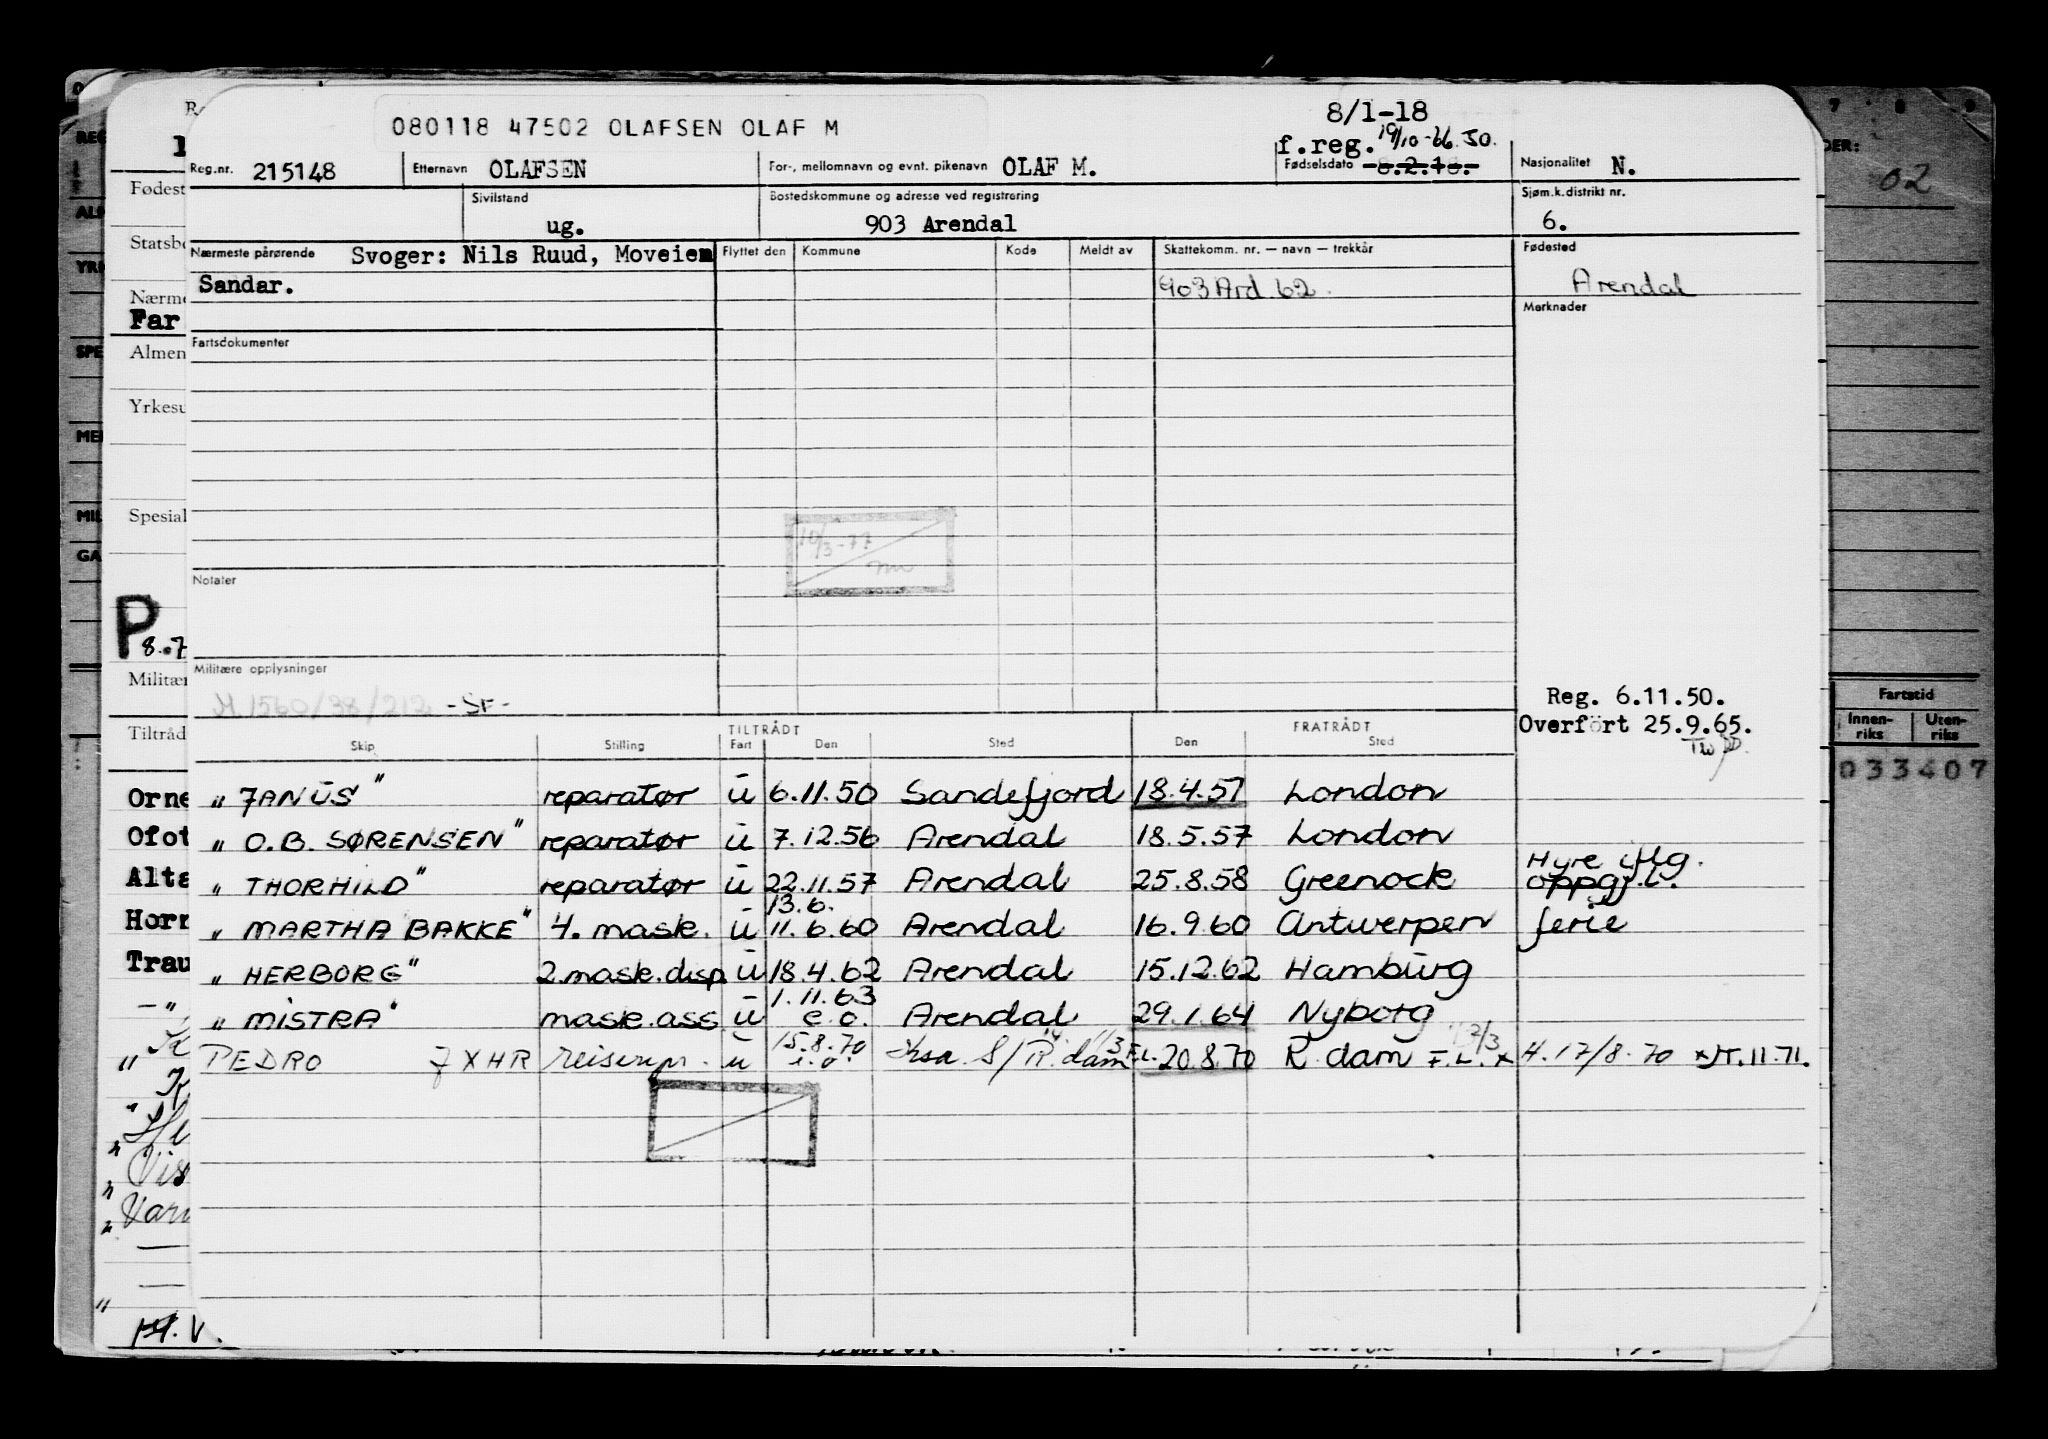 8/1-18
080118 47502 OLAFSEN OLAF M
f.reg. 19/10-66 JO.
Reg.nr. 215148 Etternavn OLAFSEN For-, mellomnavn og evnt. pikenavn OLAF M. Fødselsdato 8.2.18. Nasjonalitet N.
Sivilstand ug. Bostedskommune og adresse ved registrering 903 Arendal Sjøm.k.distrikt nr. 6.
Nærmeste pårørende Svoger: Nils Ruud, Moveien Flyttet den Kommune Kode Meldt av Skattekomm. nr. — navn — trekkår Fødested
Sandar. 903 Ard 62. Arendal
Merknader
Fartsdokumenter
10/3-77
Notater
Militære opplysninger
M.1560/38/212 -SF-
Reg. 6.11.50.
Overført 25.9.65.
TILTRÅDT FRATRÅDT
Skip Stilling Fart Den Sted Den Sted
" JANUS " reparatør u 6.11.50 Sandefjord 18.4.51 London
" O.B. SØRENSEN " reparatør u 7.12.56 Arendal 18.5.57 London
" THORHILD " reparatør u 22.11.57 Arendal 25.8.58 Greenock Hyre iflg. oppgj.l.
13.6.
" MARTHA BAKKE " 4. mask. u 11.6.60 Arendal 16.9.60 Antwerpen ferie
" HERBORG " 2.mask.disp. u 18.4.62 Arendal 15.12.62 Hamburg
1.11.63
" MISTRA " mask.ass u e.o. Arendal 29.1.64 Nyborg
15.8.70
" PEDRO JXHR u S/R.dam F.L. 20.8.70 R.dam F.L. x 4.17/8.70
Fødest
Statsbo
Nærme
Far
Almen
Yrkesu
Spesial
P
8.7
Militær
Tiltråd
Orne
Ofot
Alta
Horn
Trau
Vis
Varn
02
Fartstid
Innen-riks Uten-riks
033407